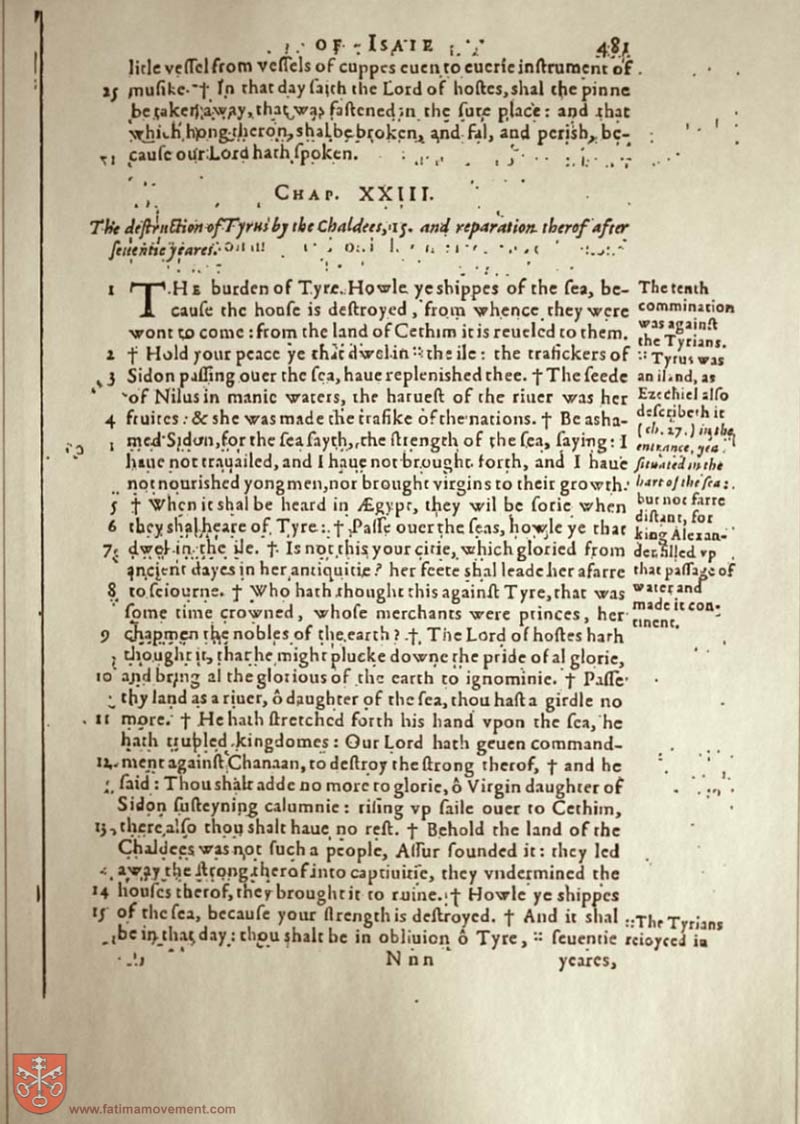 OF ISAIE 481
litle veſſel from veſſels of cuppes euen to euerie inſtrument of
25 muſike. † In that day ſaith the Lord of hoſtes, shal the pinne
be taken away, that was faſtened in the ſure place: and that
which hong theron, shal be broken, and fal, and perish, be-
cauſe our Lord hath ſpoken.
CHAP. XXIII.
The deſtruction of Tyrus by the Chaldees, 15. and reparation therof after
ſeuentie yeares.
1 THE burden of Tyre. Howle ye shippes of the ſea, be-
cauſe the houſe is deſtroyed, from whence they were
wont to come: from the land of Cethim it is reueled to them.
2 † Hold your peace ye that dwel in :: the ile: the trafickers of
3 Sidon paſſing ouer the ſea, haue replenished thee. † The ſeede
of Nilus in manie waters, the harueſt of the riuer was her
4 fruites: & she was made the trafike of the nations. † Be asha-
med Sidon, for the ſea ſayth, the ſtrength of the ſea, ſaying: I
haue not trauailed, and I haue not brought forth, and I haue
not nourished yongmen, nor brought virgins to their growth.
5 † When it shal be heard in Ægypt, they wil be ſorie when
6 they shal heare of Tyre: † Paſſe ouer the ſeas, howle ye that
7 dwel in the ile. † Is not this your citie, which gloried from
ancient dayes in her antiquitie? her feete shal leade her afarre
8 to ſeiourne. † Who hath thought this againſt Tyre, that was
ſome time crowned, whoſe merchants were princes, her
9 chapmen the nobles of the earth? † The Lord of hoſtes hath
thought it, that he might plucke downe the pride of al glorie,
10 and bring al the glorious of the earth to ignominie. † Paſſe
thy land as a riuer, ô daughter of the ſea, thou haſt a girdle no
11 more. † He hath ſtretched forth his hand vpon the ſea, he
hath trubled kingdomes: Our Lord hath geuen command-
12 ment againſt Chanaan, to deſtroy the ſtrong therof, † and he
ſaid: Thou shalt adde no more to glorie, ô Virgin daughter of
Sidon ſuſteyning calumnie: riſing vp ſaile ouer to Cethim,
13 there alſo thou shalt haue no reſt. † Behold the land of the
Chaldees was not ſuch a people, Aſſur founded it: they led
away the ſtrong therof into captiuitie, they vndermined the
14 houſes therof, they brought it to ruine. † Howle ye shippes
15 of the ſea, becauſe your ſtrength is deſtroyed. † And it shal
be in that day: thou shalt be in obliuion ô Tyre, :: ſeuentie
Nnn yeares,
The tenth
commination
was againſt
the Tyrians.
:: Tyrus was
an iland, as
Ezechiel alſo
deſcribeth it
(ch. 27.) in the
entrance, yea
ſituated in the
hart of the ſea:
but not farre
diſtant, for
king Alexan-
der filled vp
that paſſage of
water and
made it con-
tinent.
:: The Tyrians
reioyced in
www.fatimamovement.com